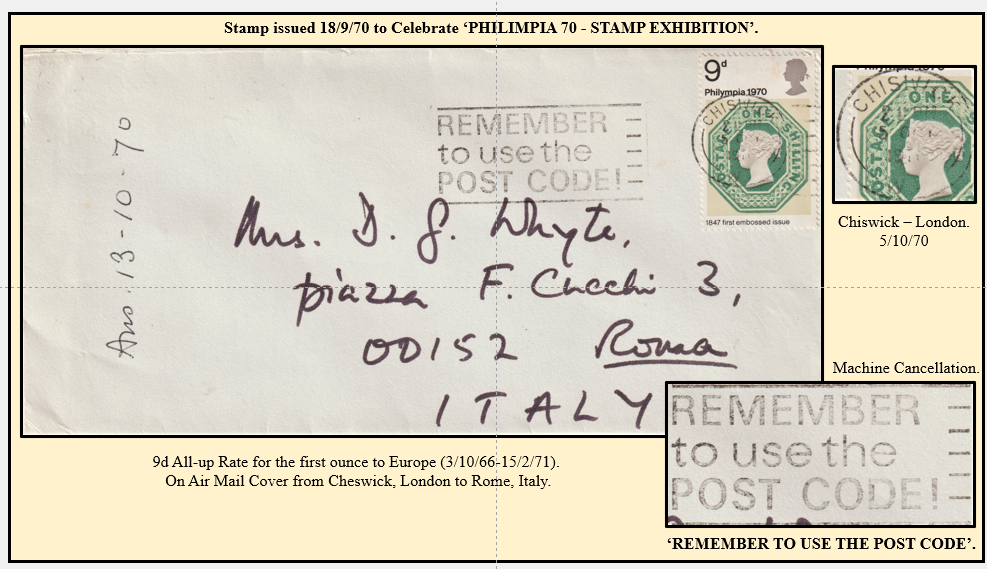 Stamp issued 18/9/70 to Celebrate ‘PHILIMPIA 70 - STAMP EXHIBITION’.
9d
Philympia 1970
CHISWICK
REMEMBER
to use the
POST CODE!
POSTAGE ONE SHILLING
1847 first embossed issue
Ans. 13-10-70
Mrs. D. G. Whyte,
piazza F. Cucchi 3,
00152 Roma
ITALY
Philympia 1970
CHISWICK
POSTAGE ONE
Chiswick – London.
5/10/70
Machine Cancellation.
REMEMBER
to use the
POST CODE!
‘REMEMBER TO USE THE POST CODE’.
9d All-up Rate for the first ounce to Europe (3/10/66-15/2/71).
On Air Mail Cover from Cheswick, London to Rome, Italy.